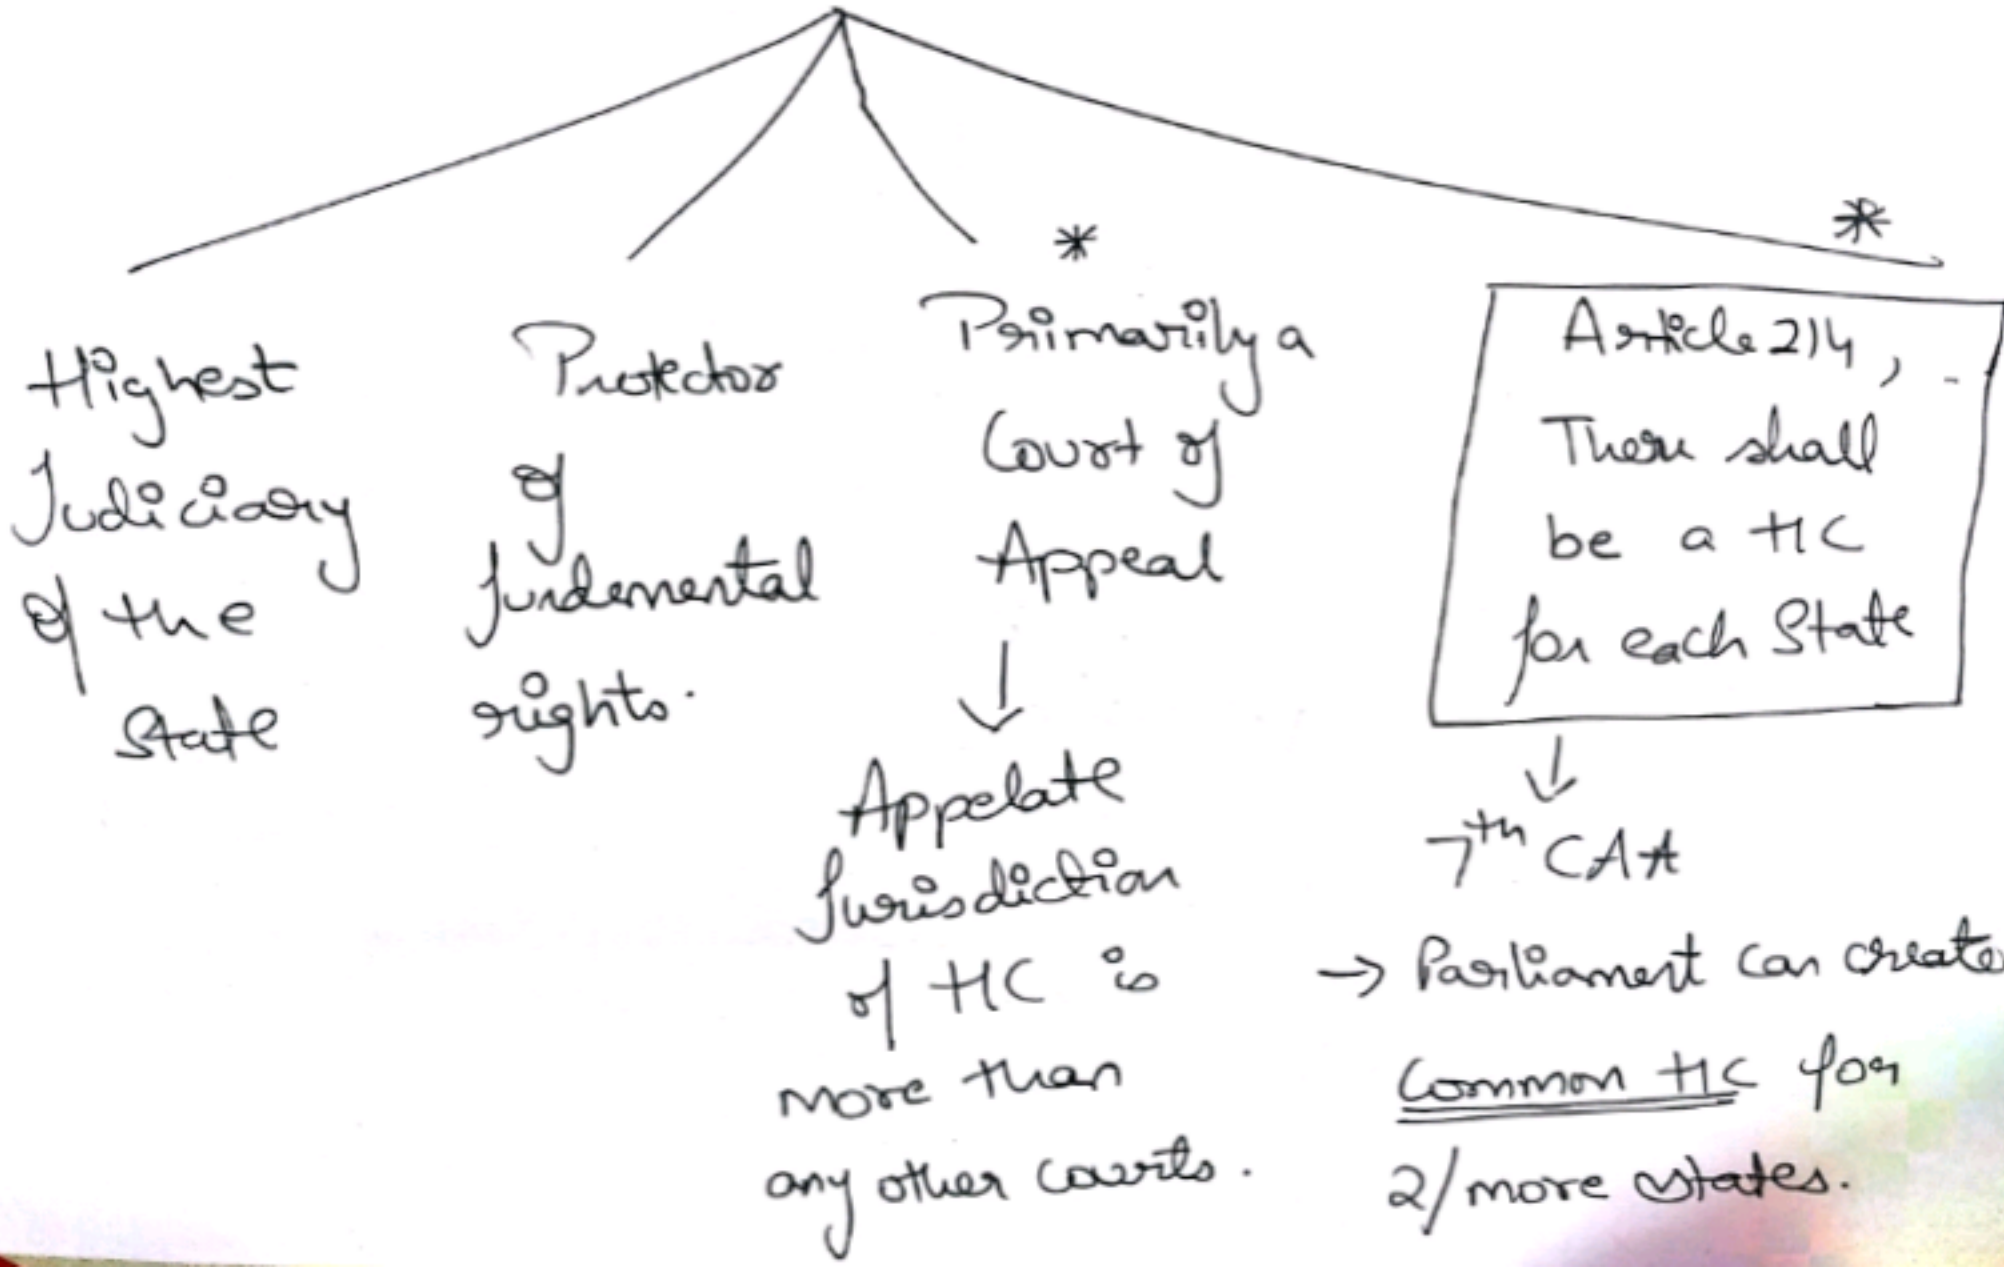 Highest
Judiciary
of the
State
Protector
of
fundemental
rights.
*
Primarily a
Court of
Appeal
↓
Appelate
Jurisdiction
of HC is
more than
any other courts.
*
Article 214,
There shall
be a HC
for each State
↓
7th CAA
→ Parliament can create
Common HC for
2/more states.